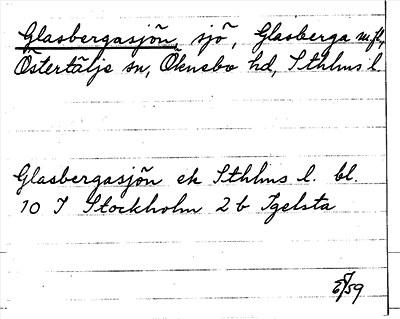 Glasbergasjön, sjö, Glasberga m.fl.,
Östertälje sn, Öknebo hd, Sthlms l.
Glasbergasjön ek Sthlms l. bl.
10 I Stockholm 2b Igelsta